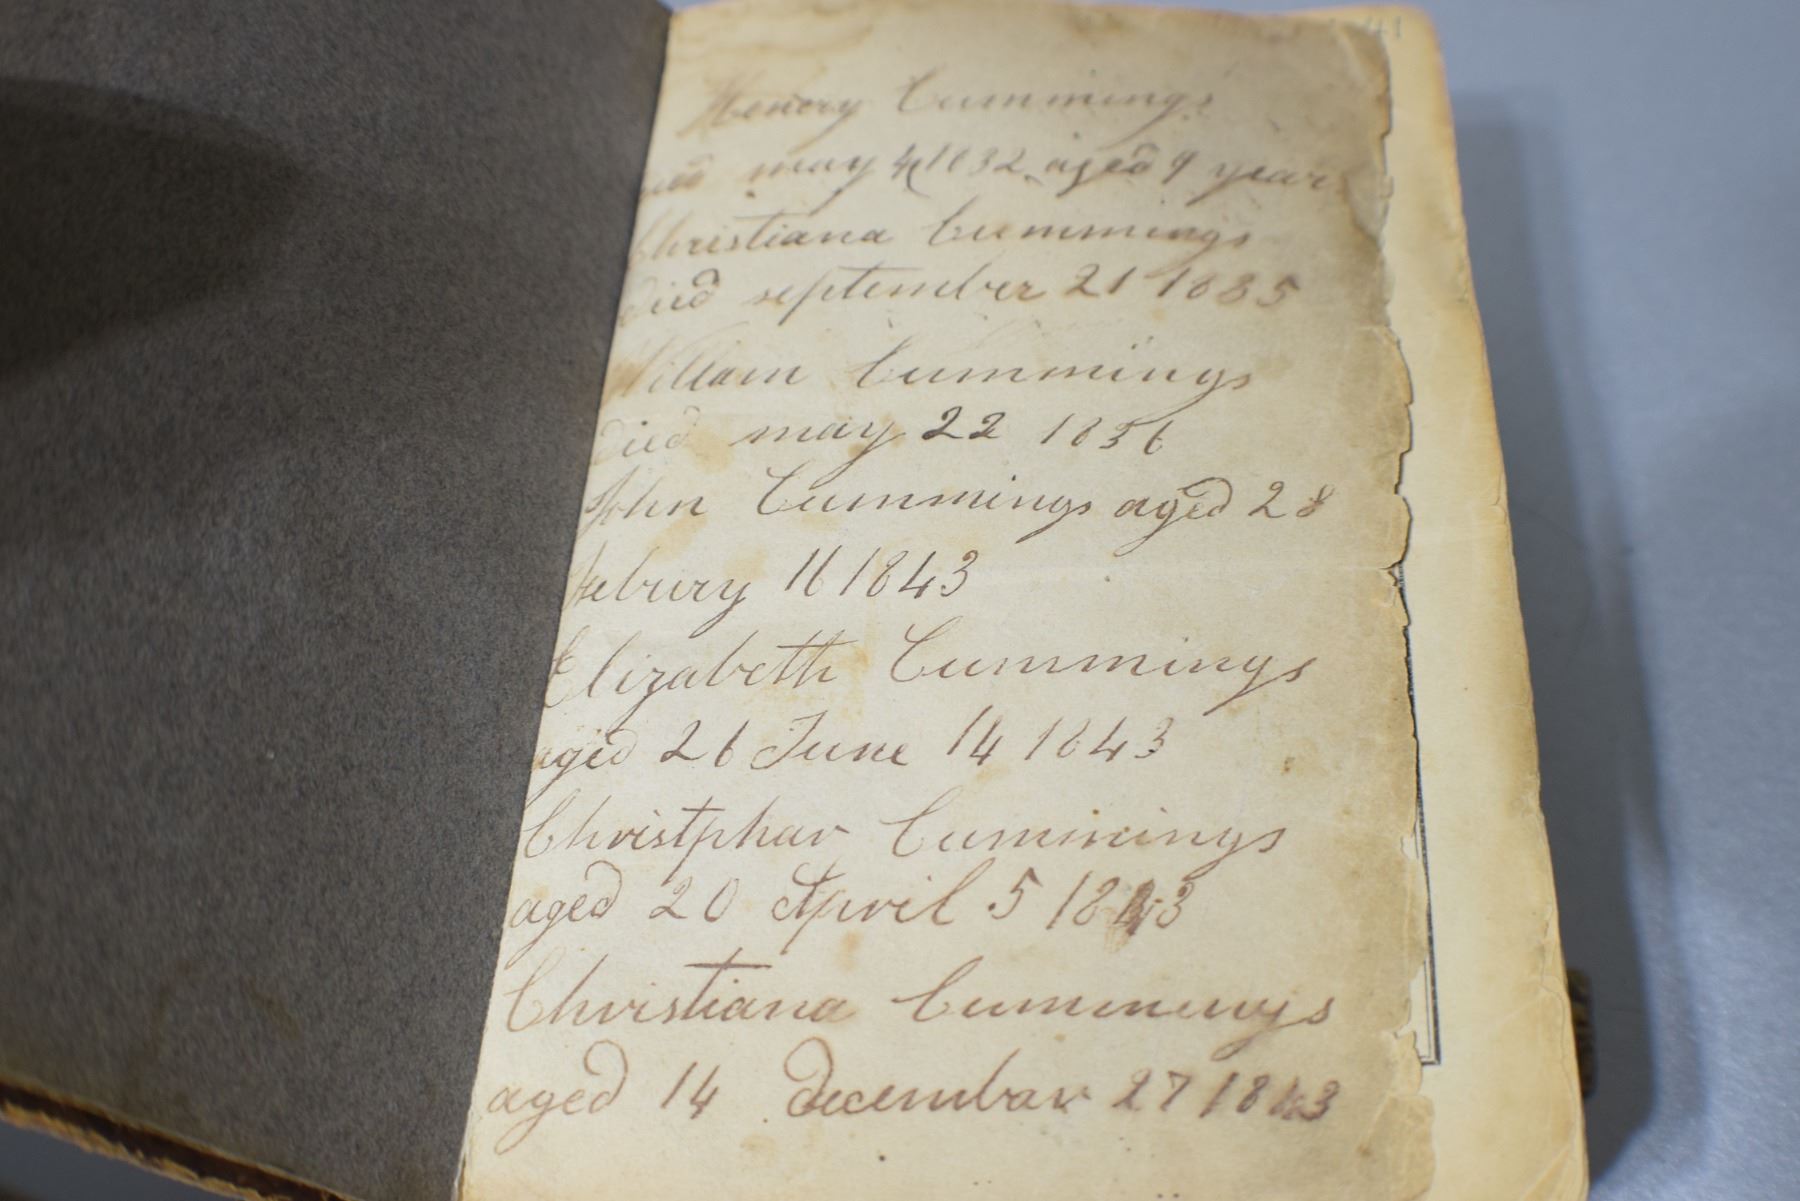 Henory Cummings
died may 4 1832 aged 9 years
Christiana Cummings
died september 21 1835
William Cummings
died may 22 1856
John Cummings aged 28
Febury 16 1843
Elizabeth Cummings
aged 26 June 14 1843
Christphar Cummings
aged 20 April 5 1843
Christiana Cummings
aged 14 decembar 27 1843